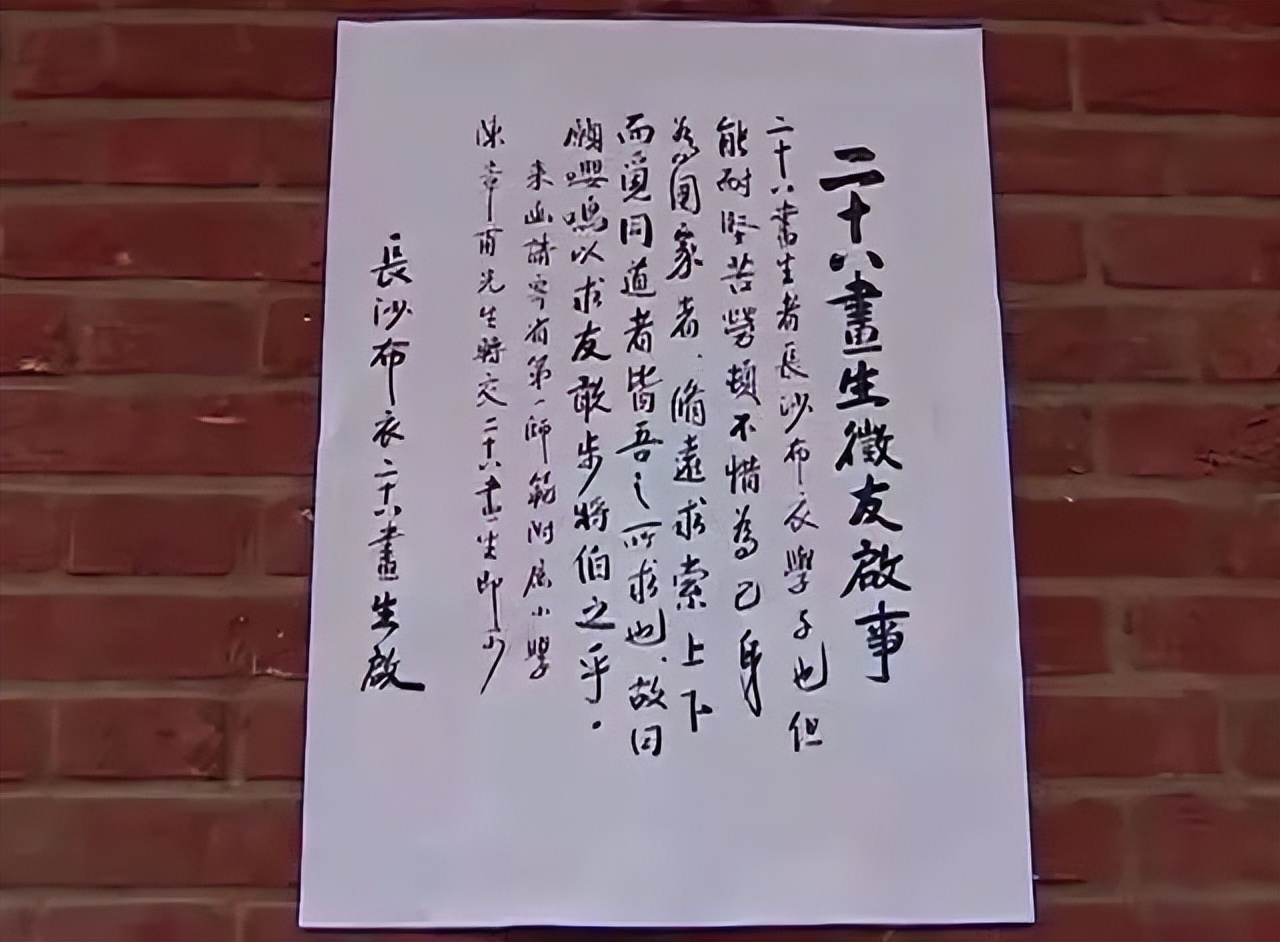 二十八畫生徵友啟事
二十八畫生者長沙布衣學子也但
能耐堅苦勞頓不惜為己身
為國家者、脩遠求索上下
而覓同道者皆吾之所求也、故曰
願嚶鳴以求友敢步將伯之乎。
来函請寄省第一師範附屬小學
陳章甫先生轉交二十八畫生即可
長沙布衣二十八畫生啟